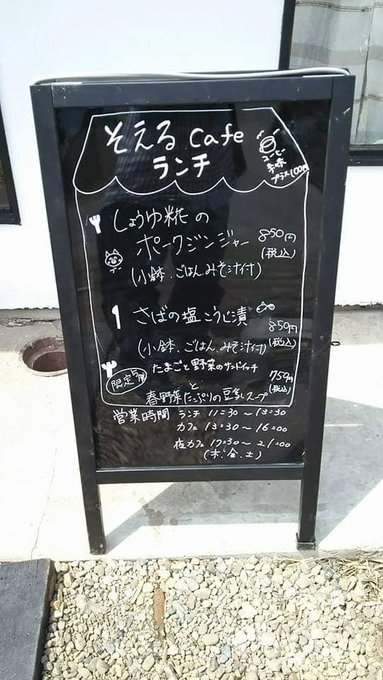 そえる cafe
ランチ
コーヒー
プラス100円
しょうゆ糀の
ポークジンジャー
850円
(税込)
(小鉢、ごはん、みそ汁付)
さばの塩こうじ漬
850円
(税込)
(小鉢、ごはん、みそ汁付)
限定5食
たまごと野菜のサンドイッチ
と
春野菜たっぷりの豆乳スープ
750円
(税込)
営業時間 ランチ 11:30〜13:30
カフェ 13:30〜16:00
夜カフェ 17:30〜21:00
(木、金、土)